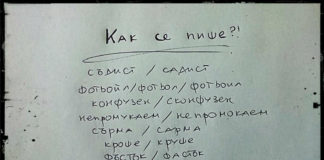 Как се пише?!
съдист / садист
фотьойл/фотьол/фотьоил
конфузен / сконфузен
непромукаем / не промокаем
сърма / сарма
кроше / круше
фъстък / фастък